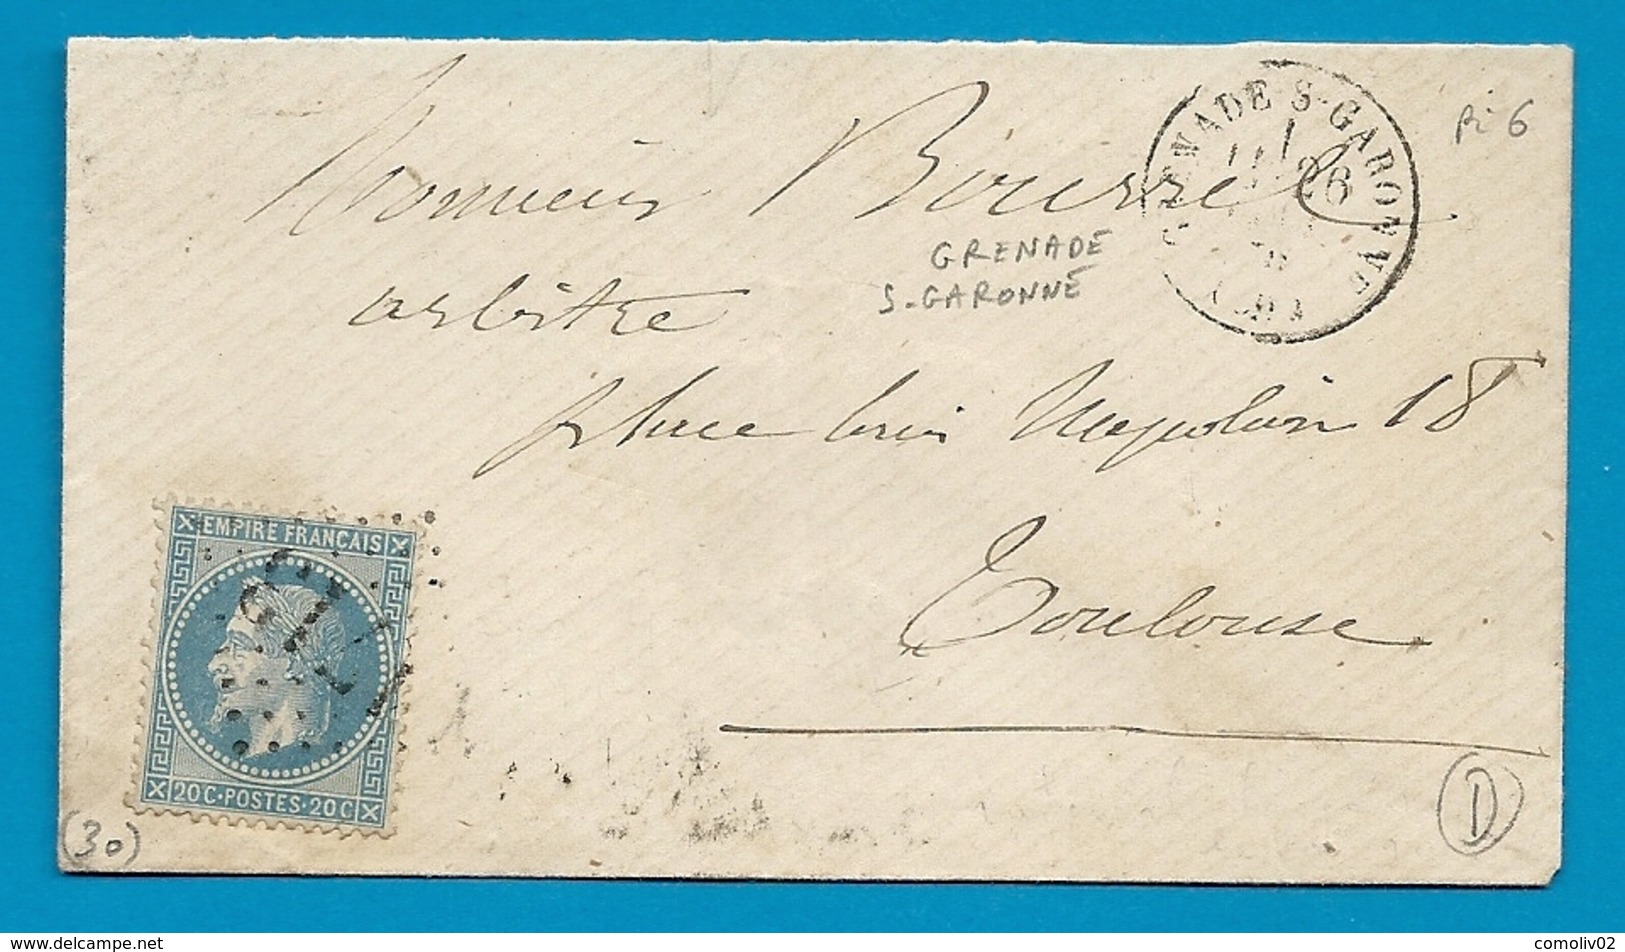 Monsieur Bourrel
arbitre
place Louis Napoléon 18
Toulouse
GRENADE-S-GARONNE
26
GRENADE
S-GARONNE
Pi 6
EMPIRE FRANÇAIS
20C·POSTES·20C
(30)
D
www.delcampe.net
comoliv02